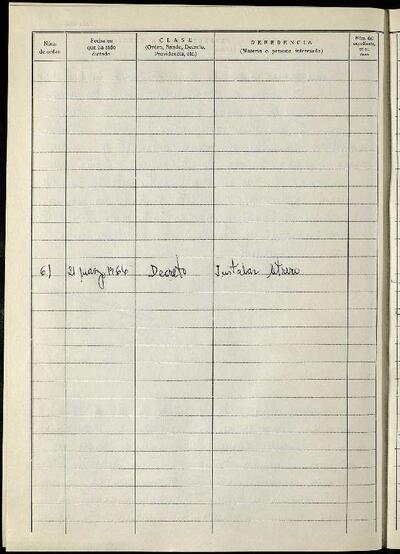 Núm. de orden
Fecha en que ha sido dictada
CLASE
(Orden, Bando, Decreto, Providencia, etc.)
DEPEDENCIA
(Materia o persona interesada)
Núm. del expediente, en su caso
6) 21 marzo 1966 Decreto Instalar letrero